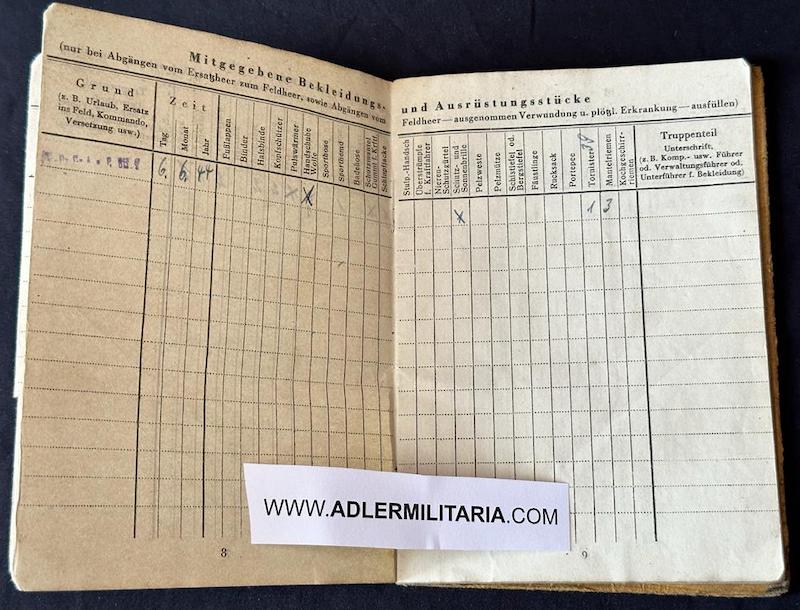 Mitgegebene Bekleidungs-
(nur bei Abgängen vom Ersatzheer zum Feldheer, sowie Abgängen vom
Grund
(z. B. Urlaub, Ersatz
ins Feld, Kommando,
Versetzung usw.)
Zeit
Tag
Monat
Jahr
Fußlappen
Binder
Halsbinde
Kopfschützer
Pulswärmer
Handschuhe
Wolle
Sporthose
Sporthemd
Badehose
6. 6. 44
x X
8
und Ausrüstungsstücke
Feldheer — ausgenommen Verwundung u. plötzl. Erkrankung — ausfüllen)
Stulp.-Handsch
Überstrümpfe
f. Kraftfahrer
Nieren-
Schutzgürtel
Schutz- und
Sonnenbrille
Pelzweste
Pelzmütze
Schistiefel od.
Bergstiefel
Fäustlinge
Rucksack
Portepee
Tornister 39
Mantelriemen
Kochgeschirr-
riemen
Truppenteil
Unterschrift,
(z. B. Komp.- usw. Führer
od. Verwaltungsführer od.
Unterführer f. Bekleidung)
x 1 3
9
WWW.ADLERMILITARIA.COM